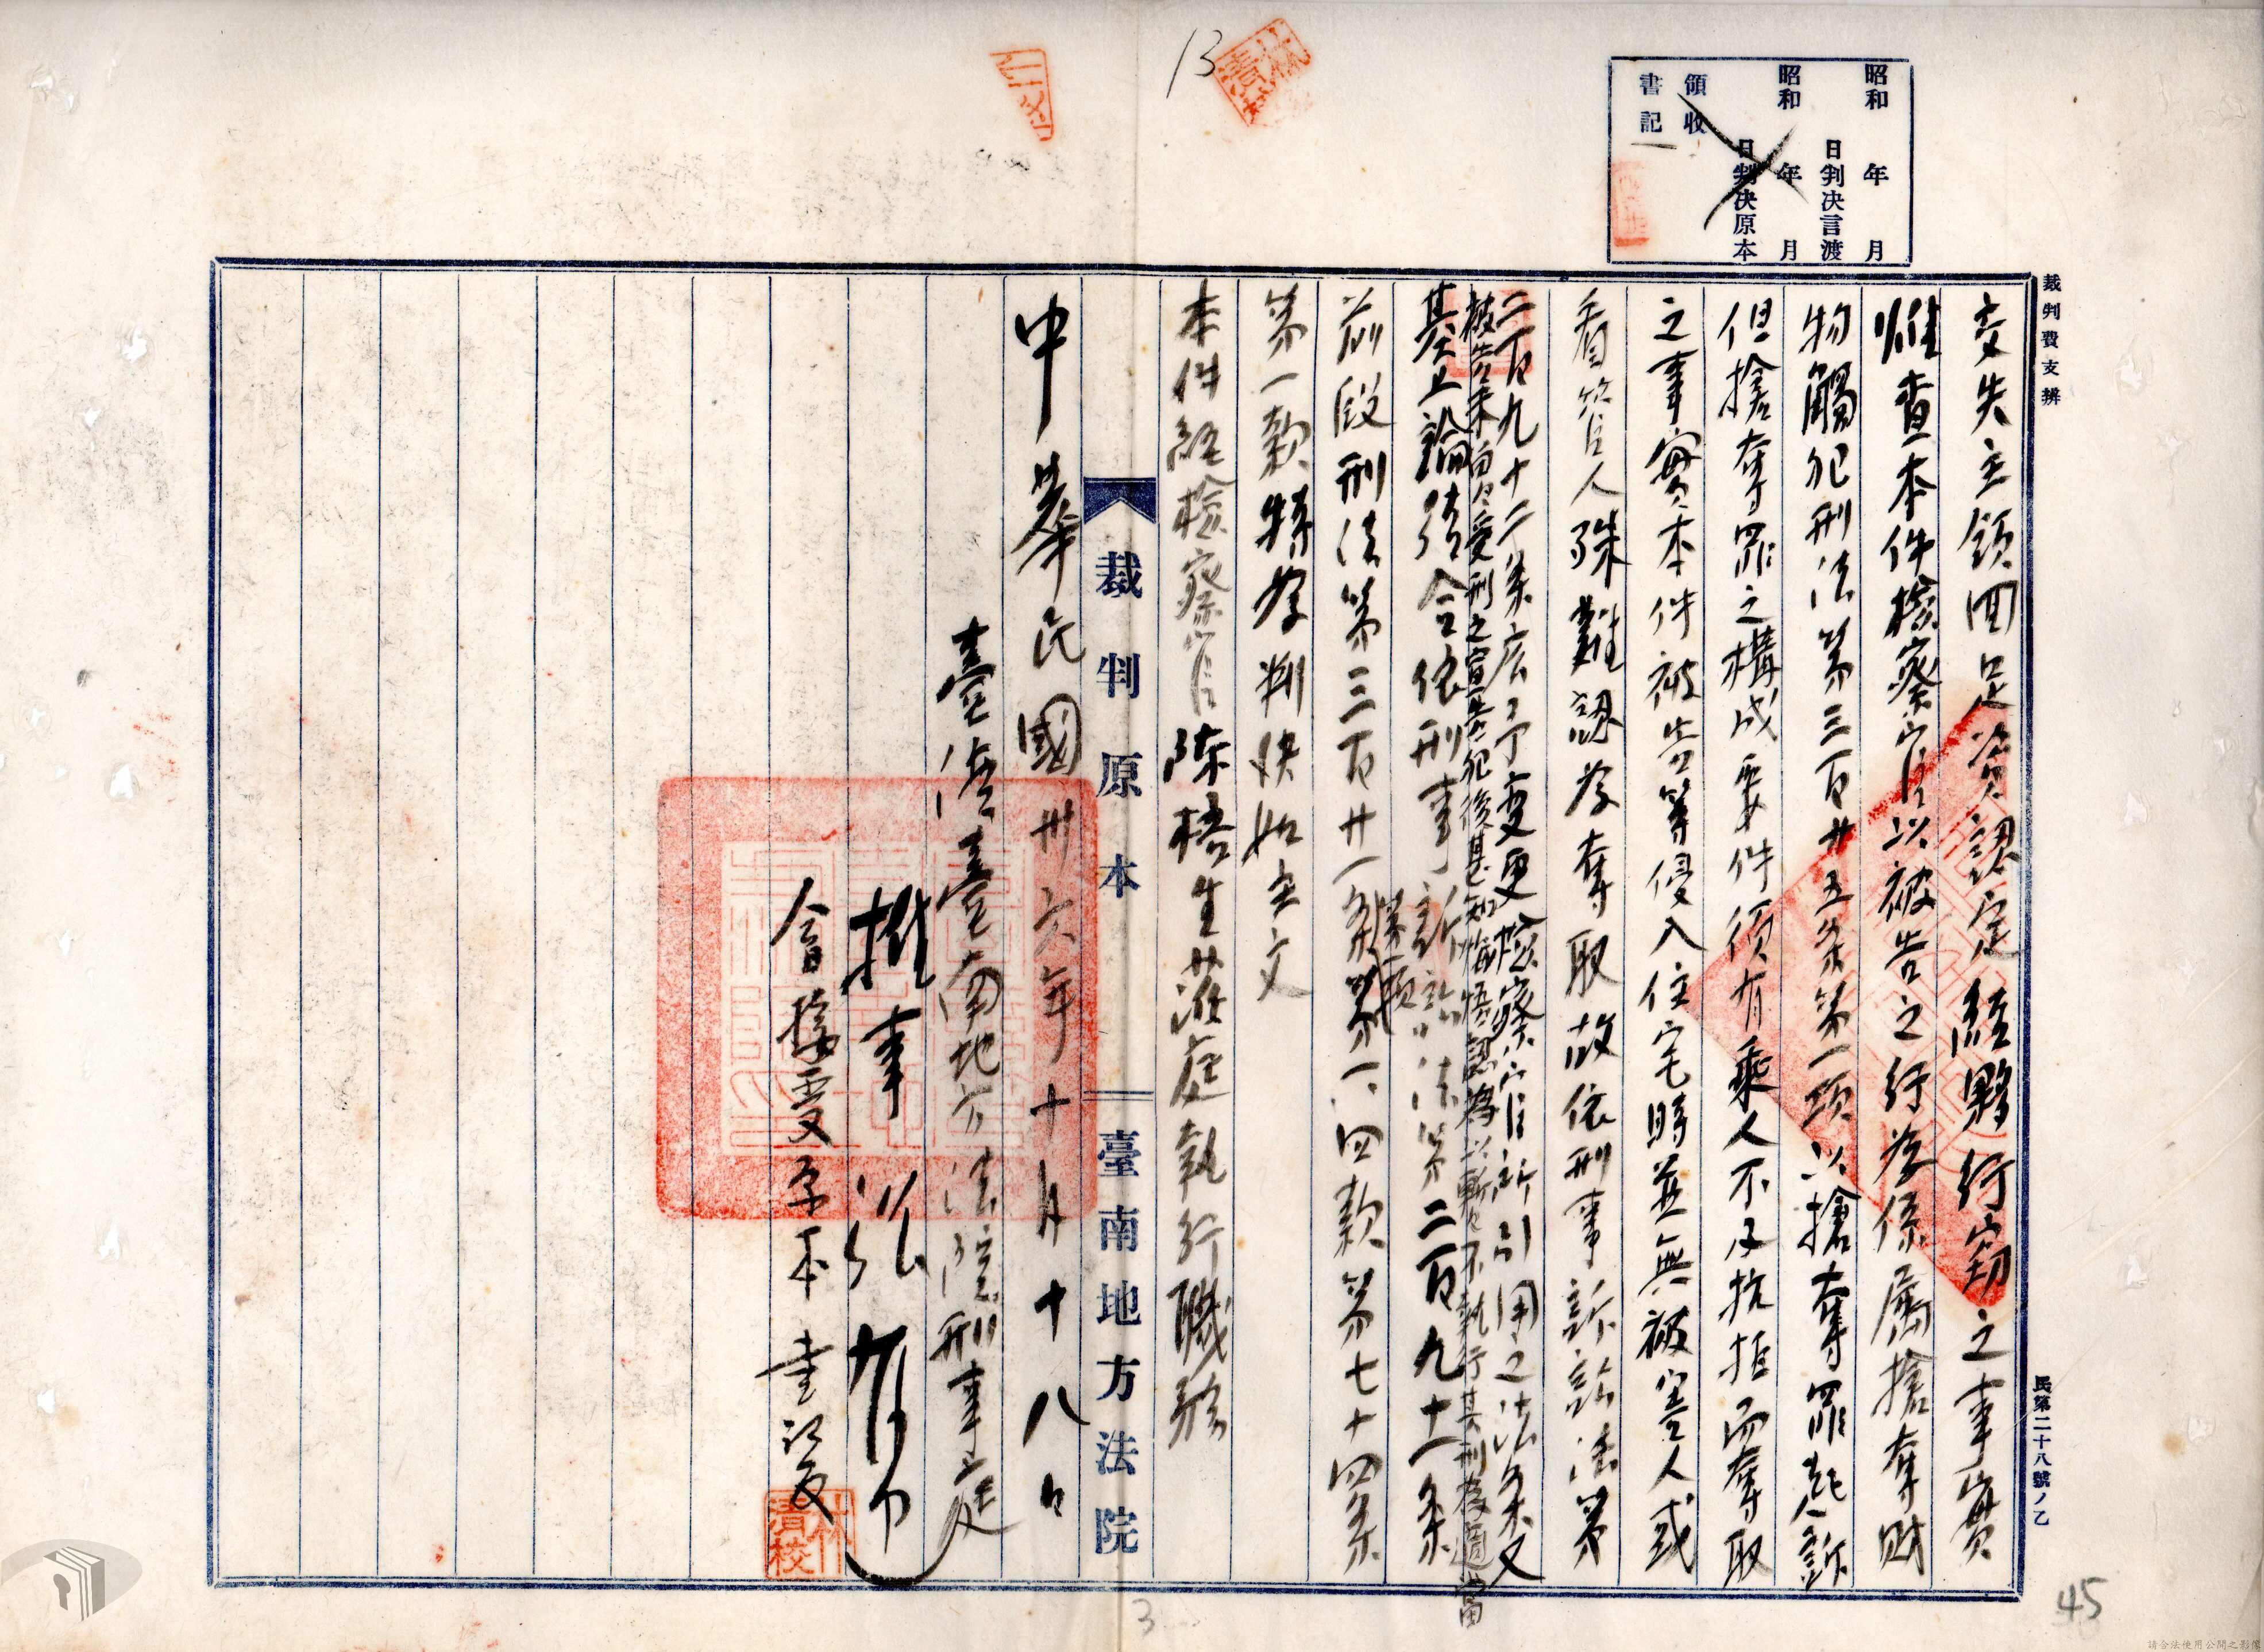 13
昭和　年　月
日判決言渡
昭和　年　月
日判決原本
領收
書記
裁判費支辨
民第二十八號ノ乙
交失主領回足資認定經夥行竊之事實
惟查本件檢察官以被告之行為係屬搶奪財
物觸犯刑法第三百廿五条第一項以搶奪罪起訴
但搶奪罪之構成要件須有乘人不及抗拒而奪取
之事實本件被告等侵入住宅時並無被害人或
看管人殊難認為奪取故依刑事訴訟法第
二百九十二条應予變更檢察官所引用之法条又
被告未曾受刑之宣告犯後甚知悔悟認為以暫不執行其刑為適當
基上論結合依刑事訴訟法第二百九十一条
前段刑法第三百廿一条第一項第一、四款第七十四条
第一款特為判決如主文
本件經檢察官陳梧生蒞庭執行職務
裁判原本
臺南地方法院
中華民國卅六年十月十八日
臺灣臺南地方法院刑事庭
推事
會接受原本 書記官
林清校
3
45
請合法使用公開之影像